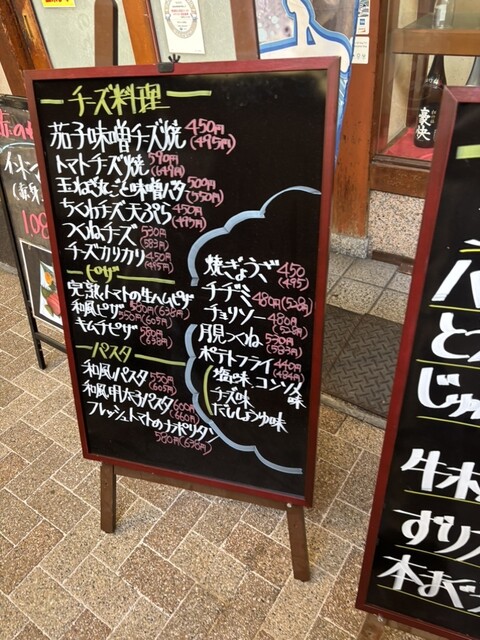 チーズ料理
茄子味噌チーズ焼 450円(495円)
トマトチーズ焼 590円(649円)
玉ねぎ丸ごと味噌バター 500円(550円)
ちくわチーズ天ぷら 450円(495円)
つくねチーズ 530円(583円)
チーズカリカリ 450円(495円)
ピザ
完熟トマトの生ハムピザ 580円(638円)
和風ピザ 550円(605円)
キムチピザ 580円(638円)
パスタ
和風パスタ 550円(605円)
和風明太パスタ 600円(660円)
フレッシュトマトのナポリタン 580円(638円)
焼ぎょうざ 450(495)
チヂミ 480円(528円)
チョリソー 480円(528円)
月見つくね 530円(583円)
ポテトフライ 440円(484円)
塩味、コンソメ味
チーズ味
だししょうゆ味
豪快
牛
本まぐ